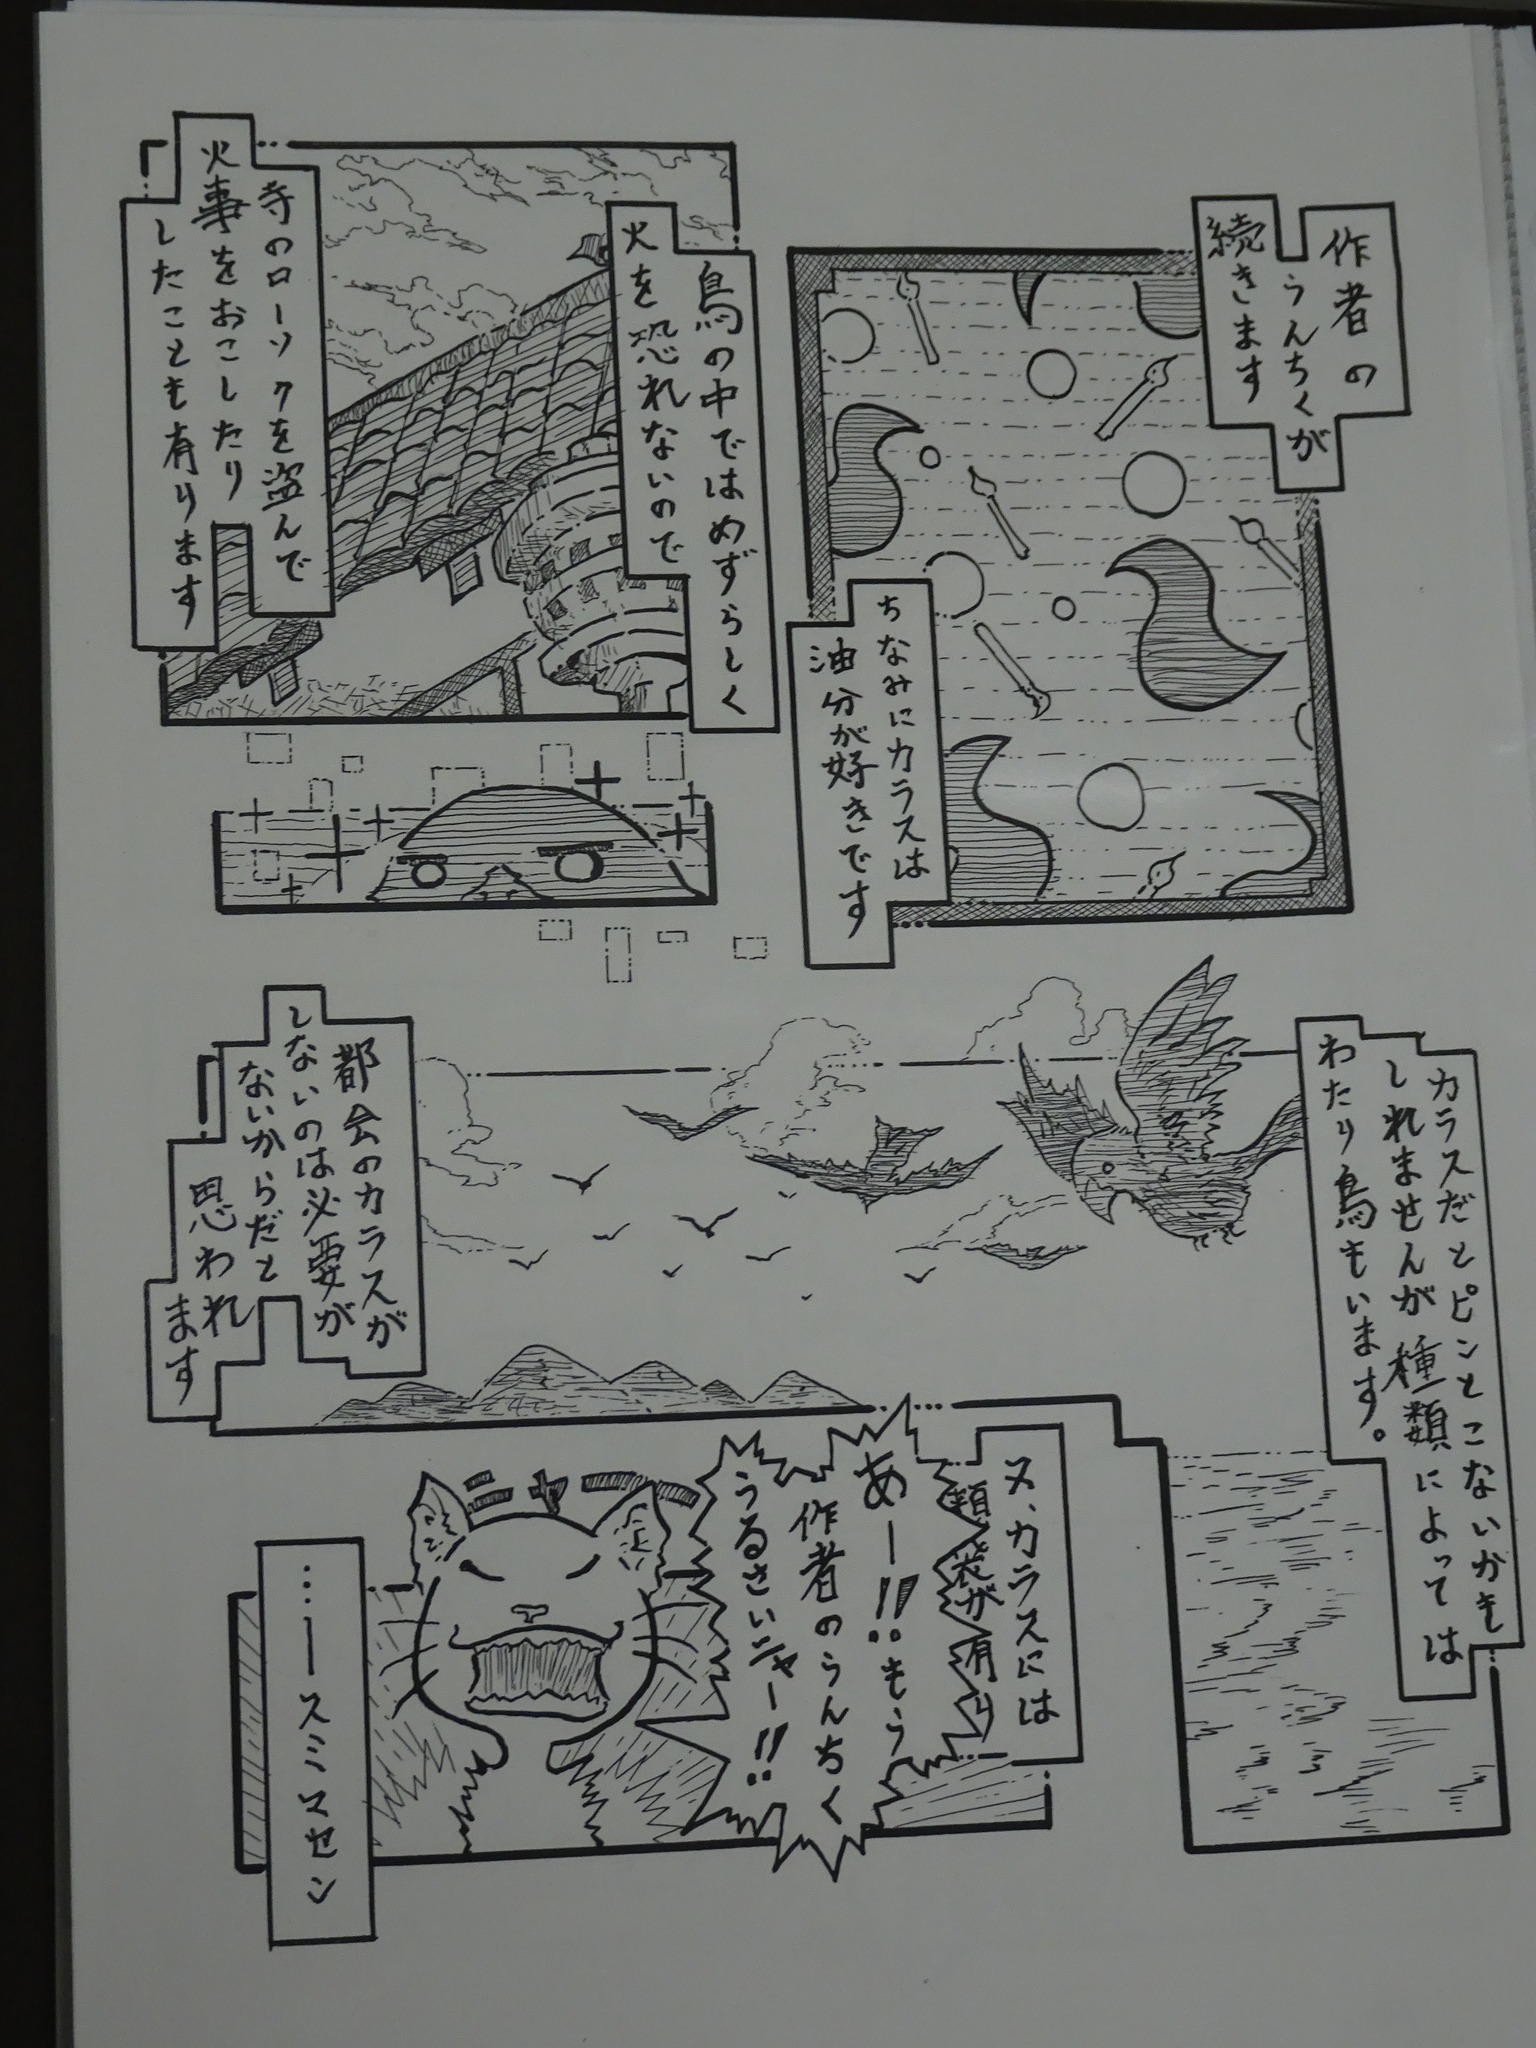 作者の
うんちくが
続きます
ちなみにカラスは
油分が好きです
鳥の中ではめずらしく
火を恐れないので
寺のローソクを盗んで
火事をおこしたり
したことも有ります
カラスだとピンとこないかも
しれませんが種類によっては
わたり鳥もいます。
都会のカラスが
しないのは必要が
ないからだと
思われ
ます
又、カラスには
頬袋が有り
あー!!もう
作者のうんちく
うるさいニャー!!
ニャー
…ースミマセン